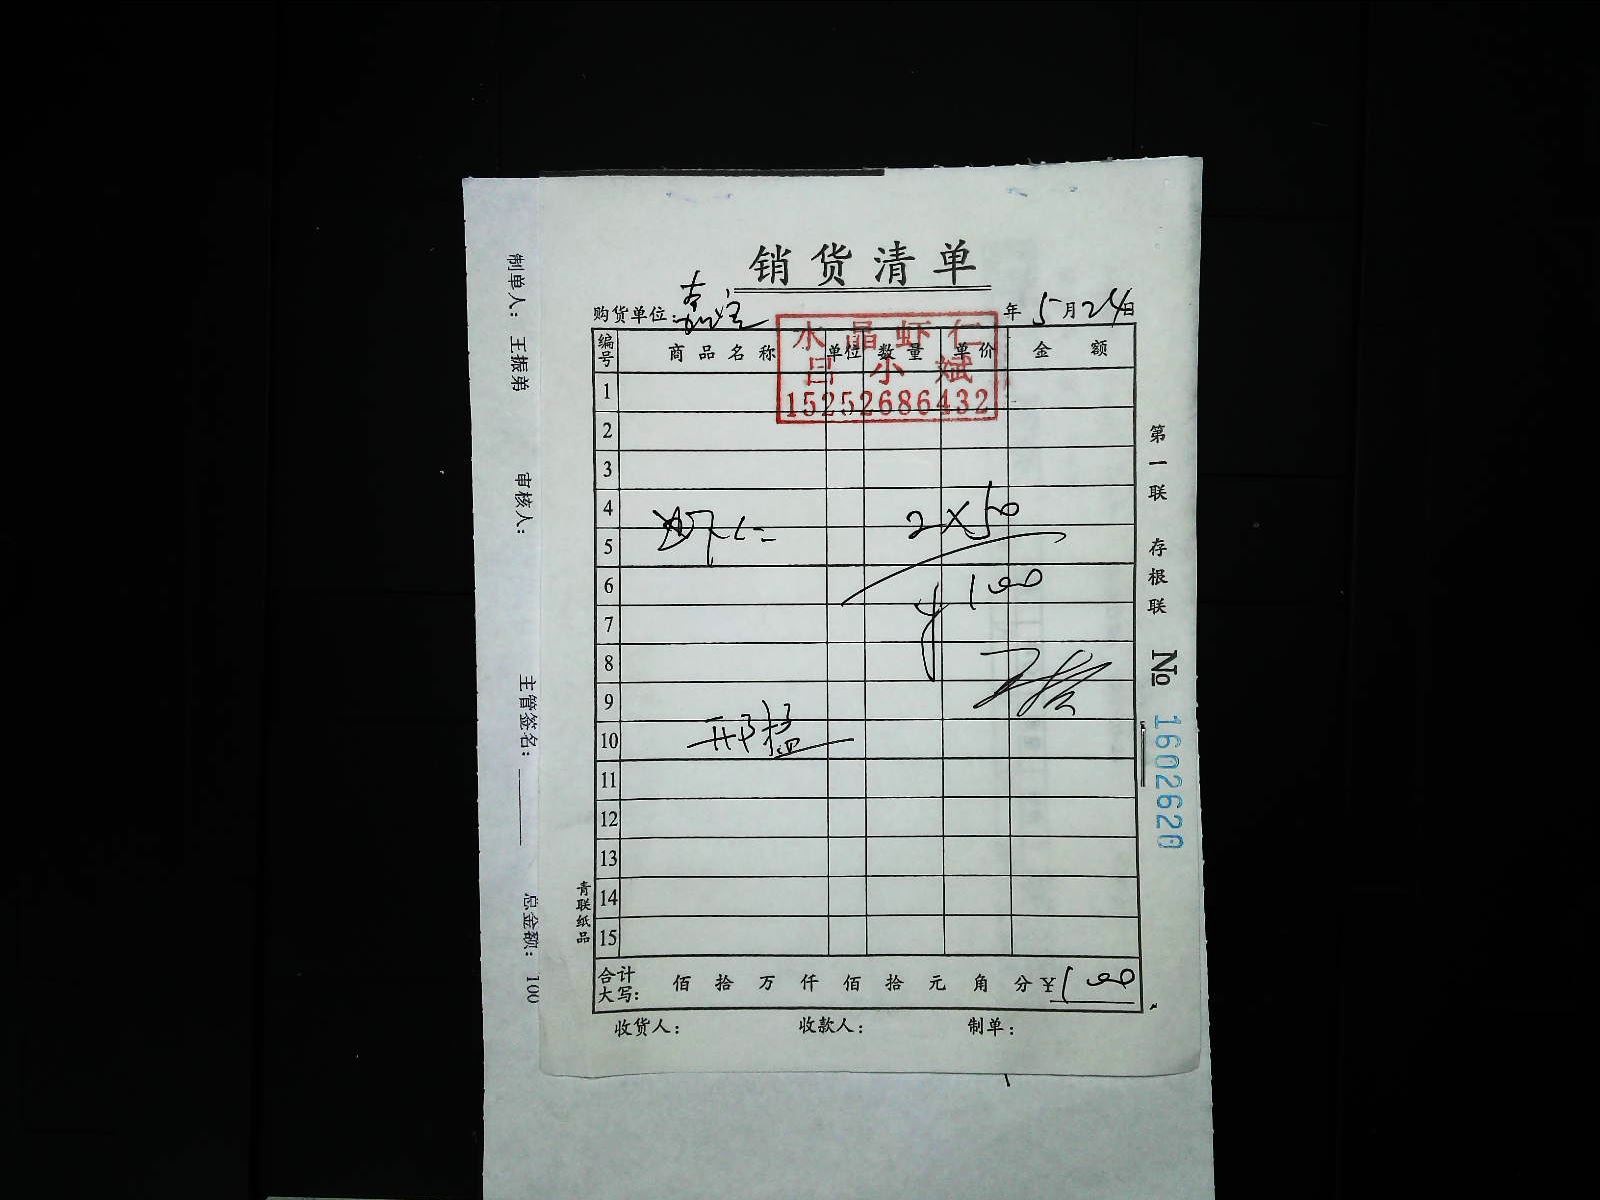 销货清单
购货单位： 年5月24日
水晶虾仁
吕小斌
15252686432
编号 商品名称 单位 数量 单价 金额
1
2
3
4
虾仁 2×50
5
6
¥100
7
8
9
10
11
12
13
14
15
合计大写： 佰 拾 万 仟 佰 拾 元 角 分 ¥100
收货人： 收款人： 制单：
青联纸品
第一联 存根联 № 1602620
制单人： 王振弟 审核人： 主管签名： 总金额： 100